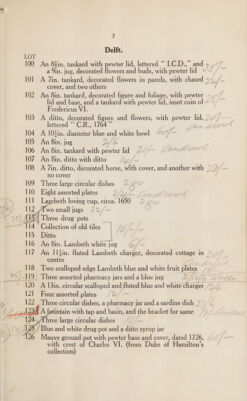 7
Delft.
LOT
100 An 8½in. tankard with pewter lid, lettered " I.C.D.," and
a 9in. jug, decorated flowers and buds, with pewter lid
101 A 7in. tankard, decorated flowers in panels, with chased
cover, and two others
102 An 8in. tankard, decorated figure and foliage, with pewter
lid and base, and a tankard with pewter lid, inset coin of
Fredericus VI.
103 A ditto, decorated figure and flowers, with pewter lid,
lettered " C.R., 1764 "
104 A 10½in. diameter blue and white bowl
105 An 8in. jug
106 An 8in. tankard with pewter lid
107 An 8in. ditto with ditto
108 A 7in. ditto, decorated horse, with cover, and another with
no cover
109 Three large circular dishes
110 Eight assorted plates
111 Lambeth loving cup, circa. 1650
112 Two small jugs
113 Three drug pots
114 Collection of old tiles
115 Ditto
116 An 8in. Lambeth white jug
117 An 11½in. fluted Lambeth charger, decorated cottage in
centre
118 Two scalloped edge Lambeth blue and white fruit plates
119 Three assorted pharmacy jars and a blue jug
120 A 13in. circular scalloped and fluted blue and white charger
121 Four assorted plates
122 Three circular dishes, a pharmacy jar and a sardine dish
123 A fountain with tap and basin, and the bracket for same
124 Three large circular dishes
125 Blue and white drug pot and a ditto syrup jar
126 Mauve ground pot with pewter base and cover, dated 1726,
with crest of Charles VI. (from Duke of Hamilton's
collection)